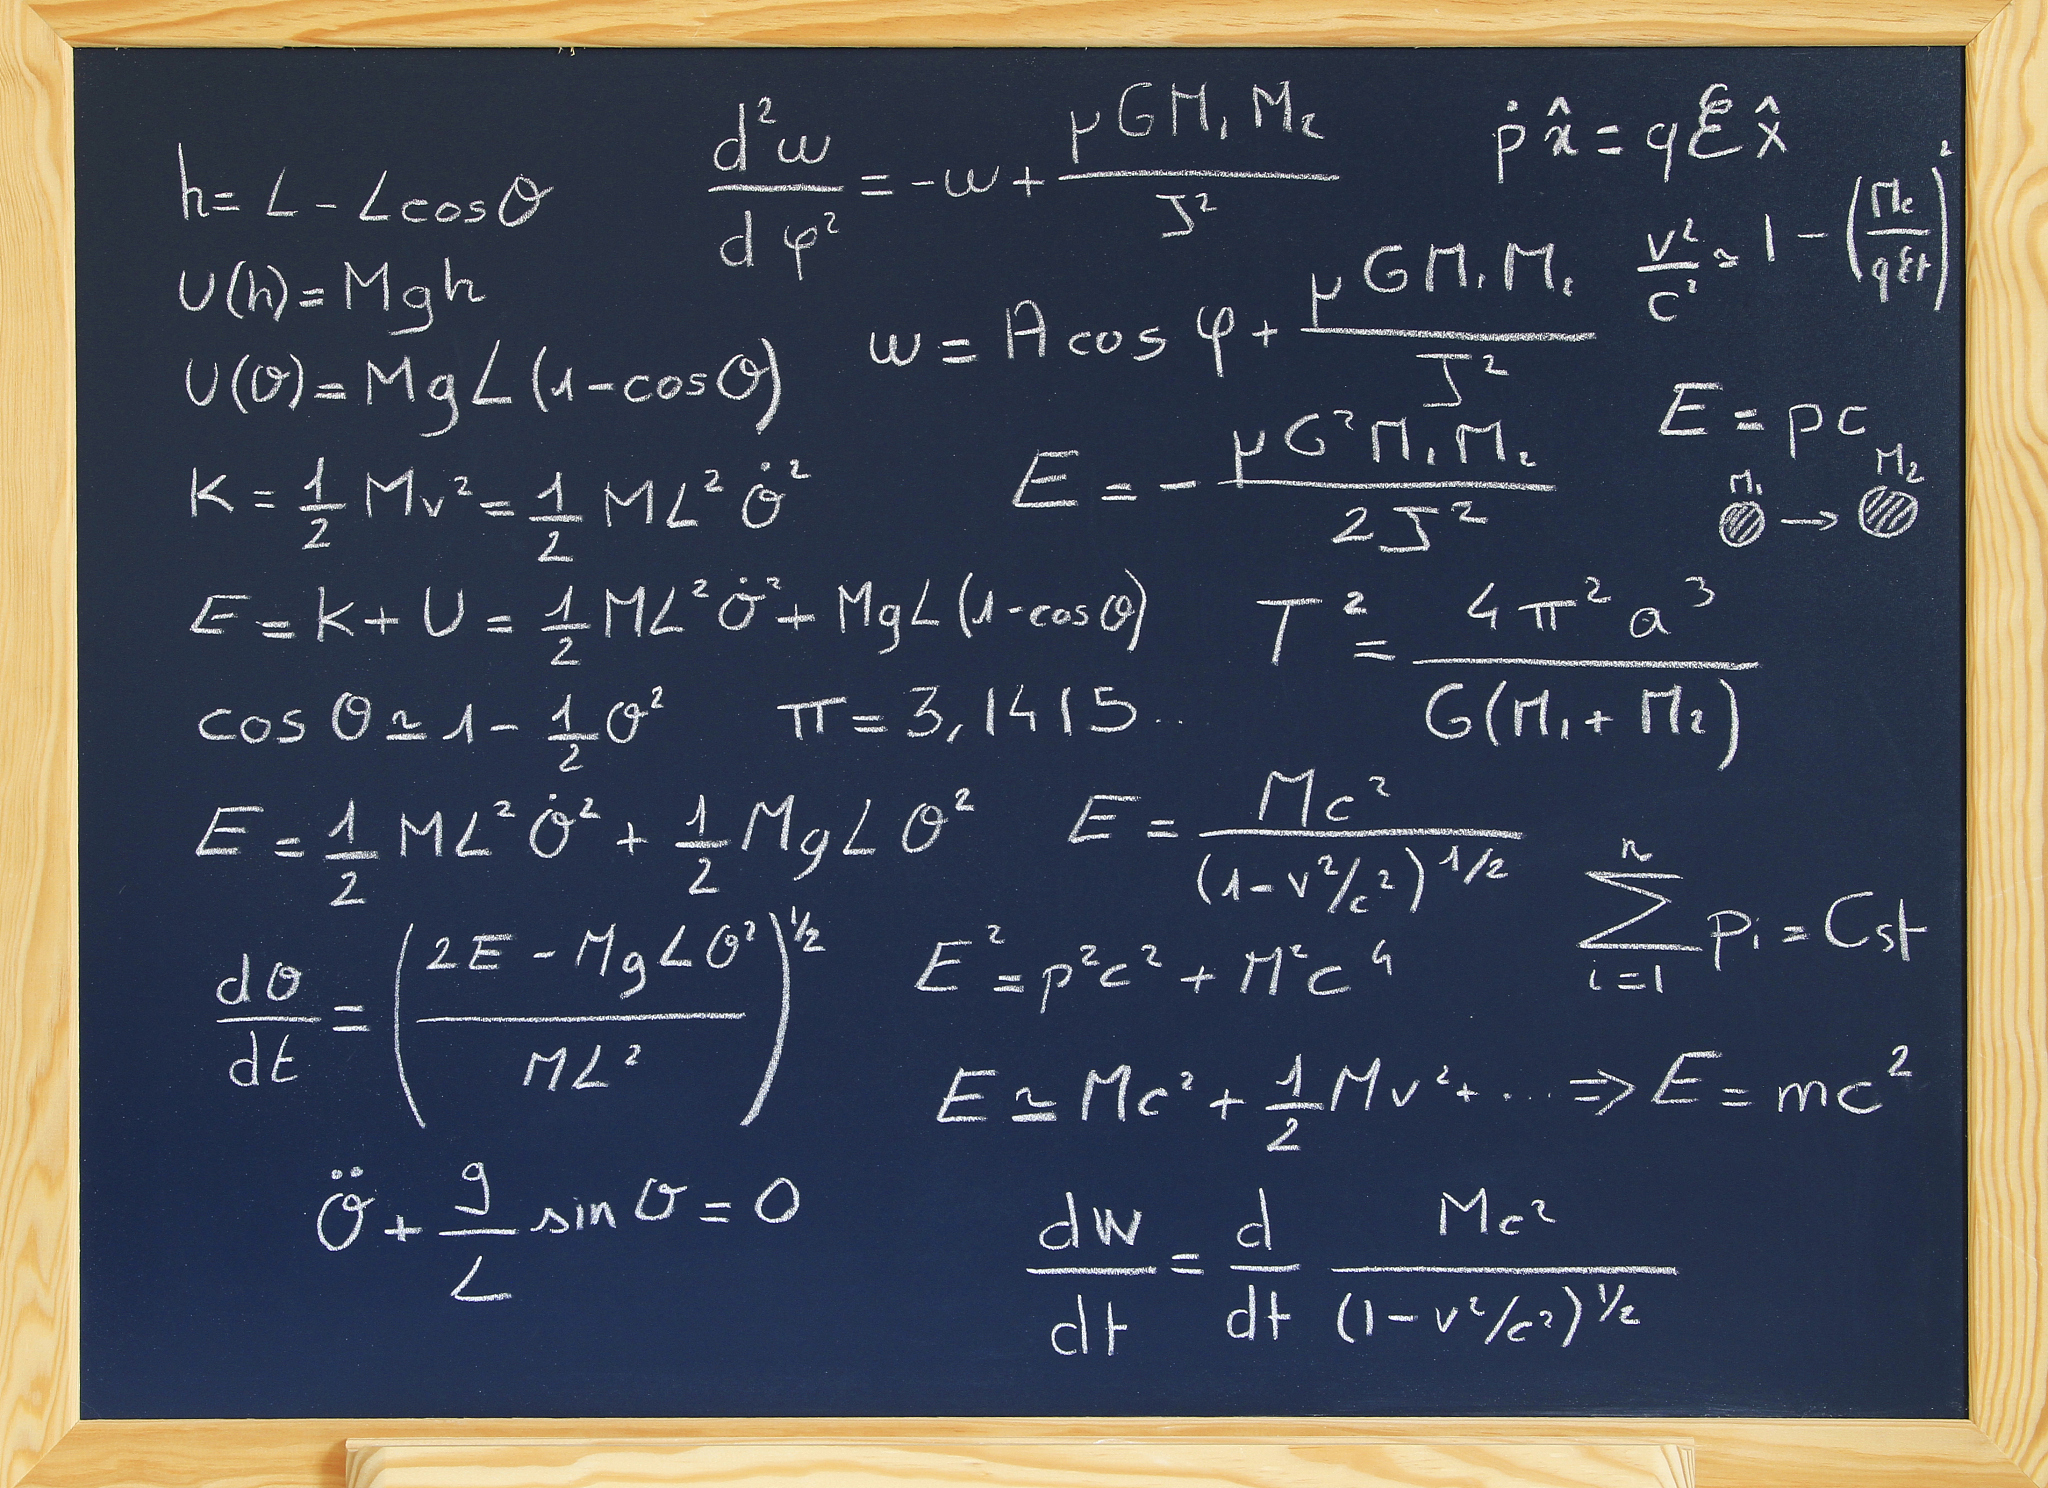 h = L - L cos θ
U(h) = Mgh
U(θ) = MgL(1-cos θ)
K = 1/2 Mv² = 1/2 ML² θ̇²
E = K + U = 1/2 ML² θ̇² + MgL(1-cos θ)
cos θ ≃ 1 - 1/2 θ²
π = 3,1415...
E = 1/2 ML² θ̇² + 1/2 MgL θ²
dθ/dt = ((2E - MgLθ²)/ML²)^1/2
θ̈ + g/L sin θ = 0
d²w/dφ² = -w + μGM₁M₂/J²
w = A cos φ + μGM₁M₂/J²
E = - μG²M₁M₂/2J²
T² = 4π²a³/G(M₁ + M₂)
E = Mc²/(1-v²/c²)^1/2
E² = p²c² + M²c⁴
E ≃ Mc² + 1/2 Mv² + ... ⇒ E = mc²
dW/dt = d/dt Mc²/(1-v²/c²)^1/2
ṗx̂ = qℰx̂
v²/c² ≃ 1 - (Mc/qℰt)²
E = pc
M₁ → M₂
∑ i=1 n pᵢ = Cst